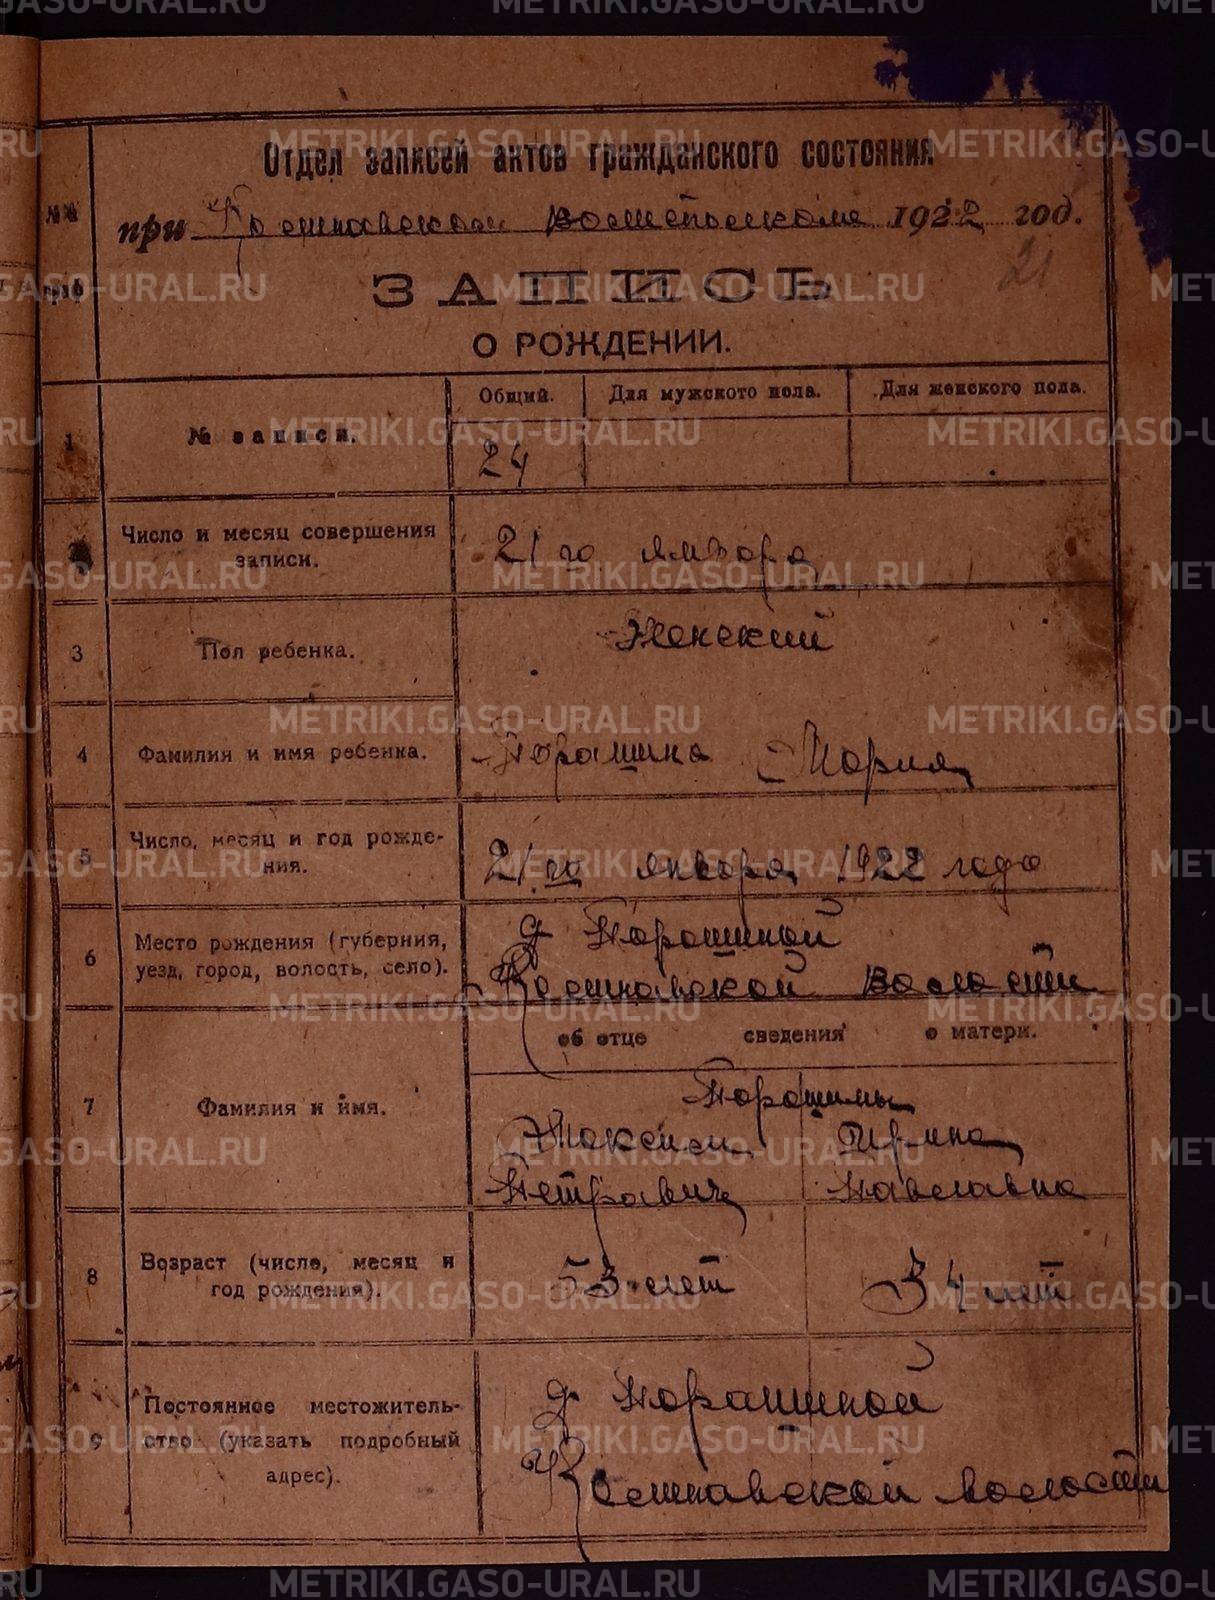 Отдел записей актов гражданского состояния
№№ граф
при волисполкоме 1922 год.
21
ЗАПИСЬ
О РОЖДЕНИИ.
1 № записи. Общий. Для мужского пола. Для женского пола.
24
2 Число и месяц совершения записи.
21 го января
3 Пол ребенка. Женский
4 Фамилия и имя ребенка. Порошина Мария
5 Число, месяц и год рожде-
ния.
21 го января 1922 года
6 Место рождения (губерния,
уезд, город, волость, село).
д Порошиной
волости
об отце сведения о матери.
7 Фамилия и имя.
Порошины
Максим Ирина
Петравич Павлавна
8 Возраст (число, месяц и
год рождения).
53 лет 34 лет
9 Постоянное местожитель-
ство (указать подробный
адрес).
д Порошиной
волости
METRIKI.GASO-URAL.RU